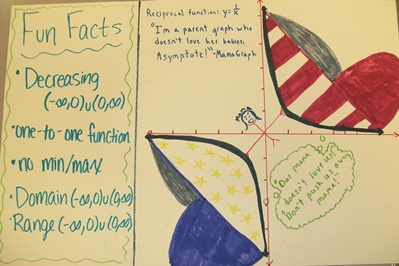 Fun Facts
• Decreasing
(-∞,0)∪(0,∞)
• one-to-one function
• no min/max
• Domain (-∞,0)∪(0,∞)
• Range (-∞,0)∪(0,∞)
Reciprocal function: y=1/x
"I'm a parent graph who
doesn't love her babies,
Asymptote!" -MamaGraph
"Our mama
doesn't love us!"
"Don't push us away
mama!"